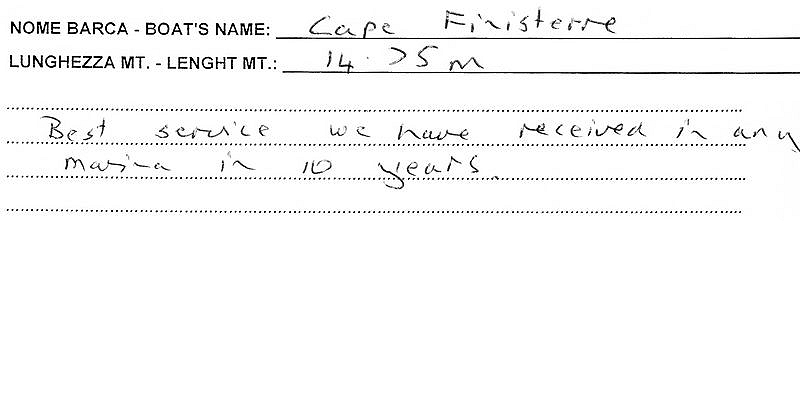 NOME BARCA - BOAT'S NAME: Cape Finisterre
LUNGHEZZA MT. - LENGHT MT.: 14.75m
Best service we have received in any
marina in 10 years.